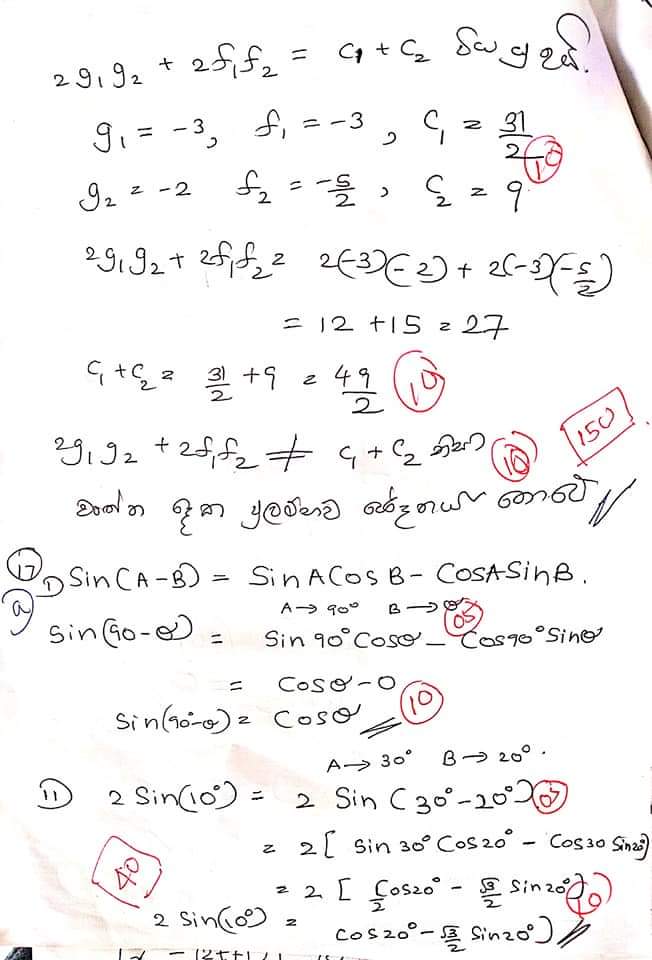 2g₁g₂ + 2f₁f₂ = c₁ + c₂ විය යුතුයි.
g₁ = -3, f₁ = -3, c₁ = 31/2 (10)
g₂ = -2 f₂ = -5/2, c₂ = 9
2g₁g₂ + 2f₁f₂ = 2(-3)(-2) + 2(-3)(-5/2)
= 12 + 15 = 27
c₁ + c₂ = 31/2 + 9 = 49/2 (10)
2g₁g₂ + 2f₁f₂ ≠ c₁ + c₂ නිසා (10) 150
වෘත්ත දෙක ප්‍රලම්භව ඡේදනය නොවේ //
(17) I) Sin(A-B) = Sin A Cos B - Cos A Sin B.
(a) A → 90° B → θ
Sin(90-θ) = Sin 90° Cos θ - Cos 90° Sin θ (05)
= Cos θ - 0
Sin(90°-θ) = Cos θ // (10)
A → 30° B → 20°.
II) 2 Sin(10°) = 2 Sin (30° - 20°) (05)
= 2[ Sin 30° Cos 20° - Cos 30 Sin 20°]
40 = 2 [ Cos20°/2 - √3/2 Sin 20°] (10)
2 Sin(10°) = Cos 20° - √3/2 Sin 20°] //